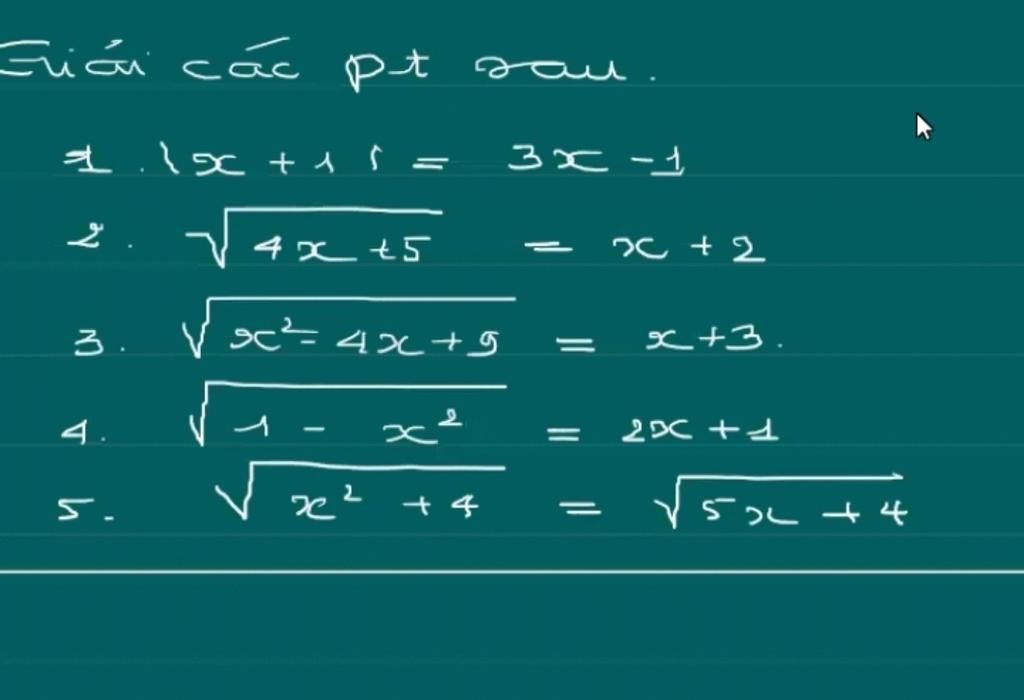 Giải các pt sau.
1. |x + 1| = 3x - 1
2. √(4x + 5) = x + 2
3. √(x² - 4x + 9) = x + 3.
4. √(1 - x²) = 2x + 1
5. √(x² + 4) = √(5x + 4)